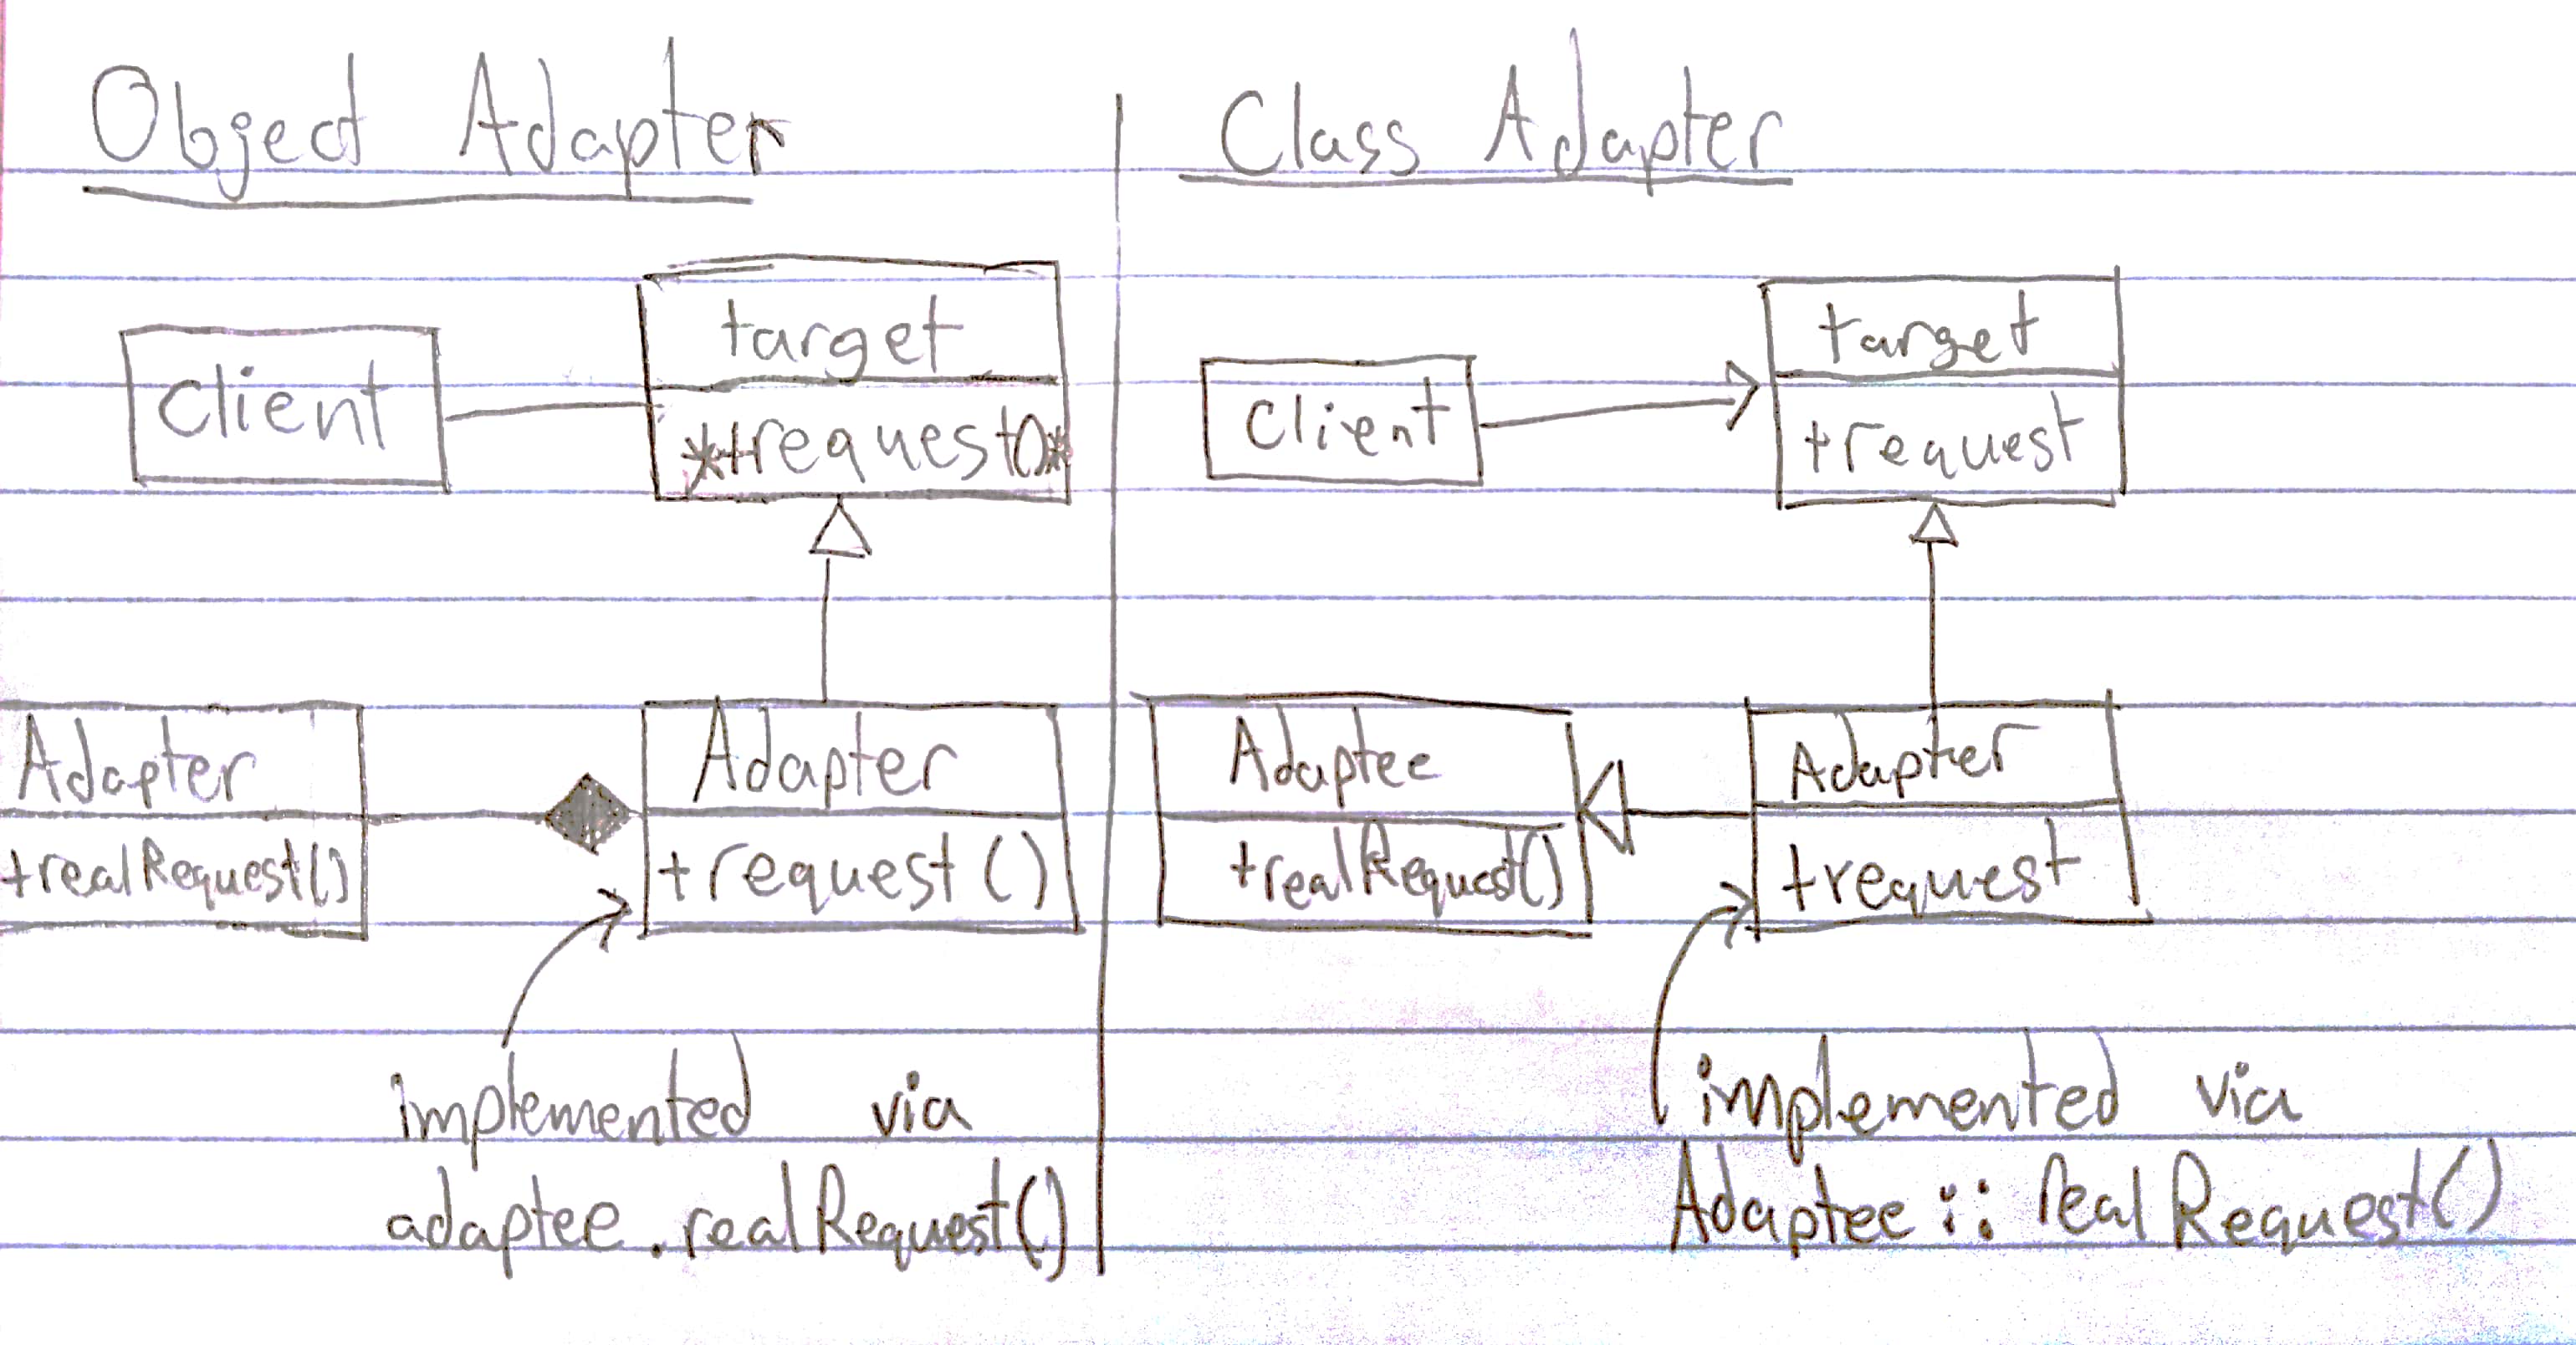 Object Adapter
Client
target
*+request()*
Adapter
+realRequest()
Adapter
+request()
implemented via
adaptee.realRequest()
Class Adapter
Client
target
+request
Adaptee
+realRequest()
Adapter
+request
implemented via
Adaptee::realRequest()